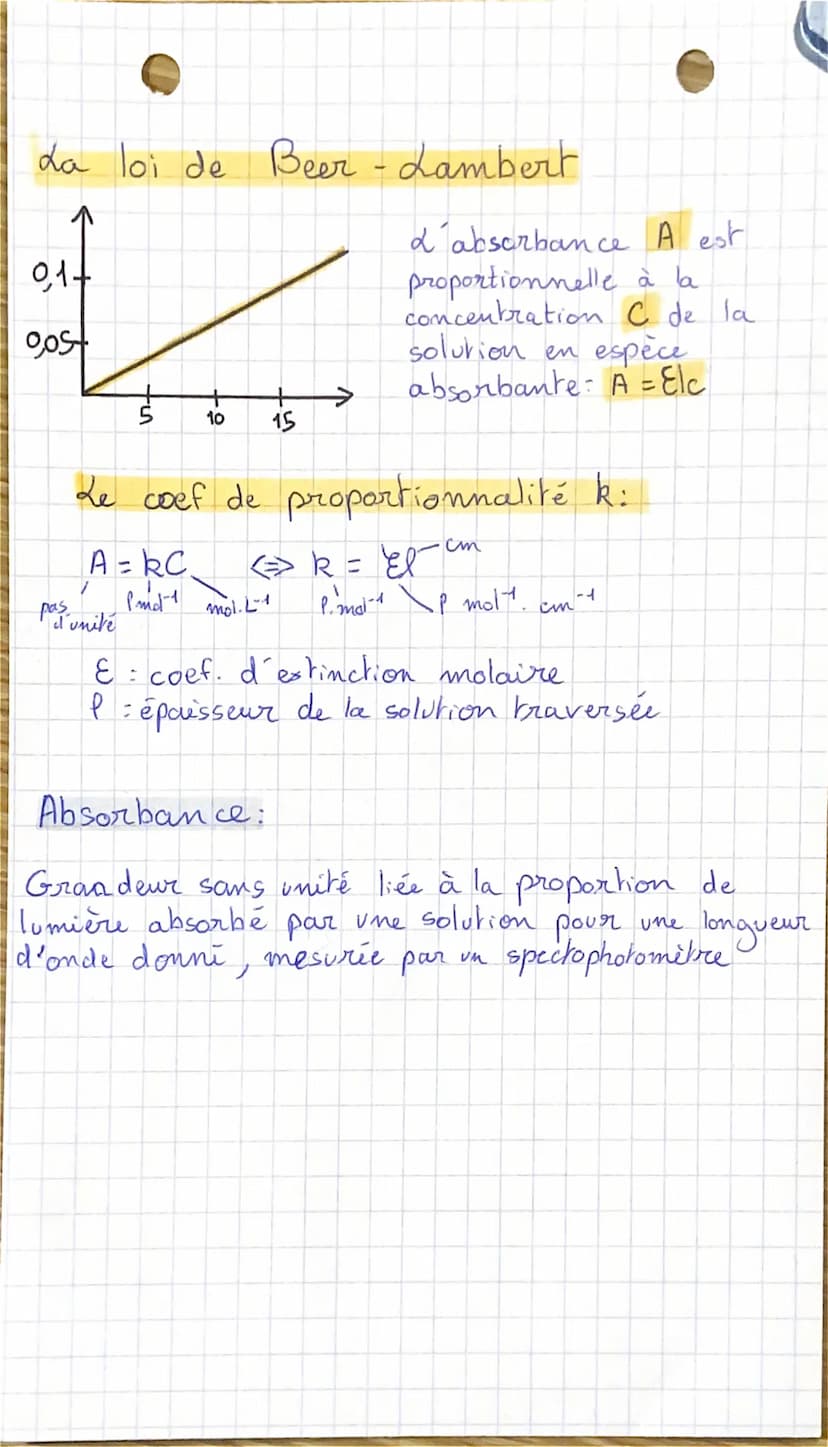 La loi de Beer - Lambert
0,1
0,05
5 10 15
L'absorbance A est
proportionnelle à la
concentration C de la
solution en espèce
absorbante: A = Elc
Le coef de proportionnalité k:
A = kC <=> k = Ɛl cm
pas d'unité l.mol⁻¹ mol.L⁻¹ l.mol⁻¹ l mol⁻¹. cm⁻¹
Ɛ : coef. d'extinction molaire
l : épaisseur de la solution traversée
Absorbance:
Grandeur sans unité liée à la proportion de
lumière absorbé par une solution pour une longueur
d'onde donné, mesurée par un spectophotomètre